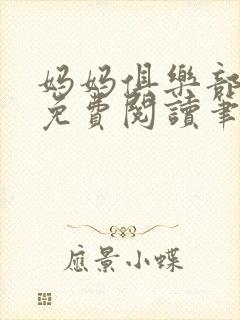 妈妈俱樂部
免費閱讀筆
應景小蝶